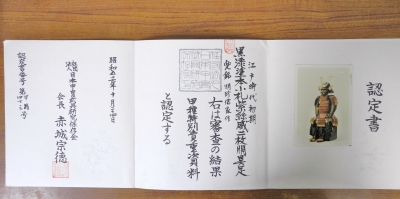 認定書
江戸時代初期
黒漆塗本小札紫絲威二枚胴具足
兜銘 明珍信家作
右は審査の結果
甲種特別貴重資料
と認定する
昭和五十二年十月二十三日
社団法人 日本甲冑武具研究保存会
会長 赤城宗徳
認定書番号